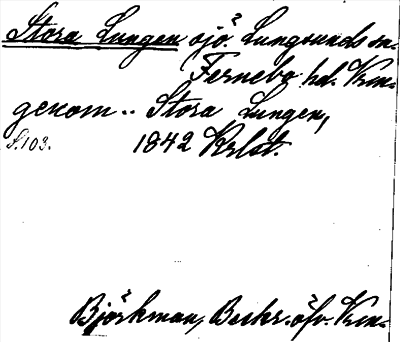 Stora Lungen sjö. Lungsunds sn.
Fernebo hd. Krm.
genom .. Stora Lungen,
S. 103. 1842 Krlst.
Björkman, Beskr. öfv. Krm.